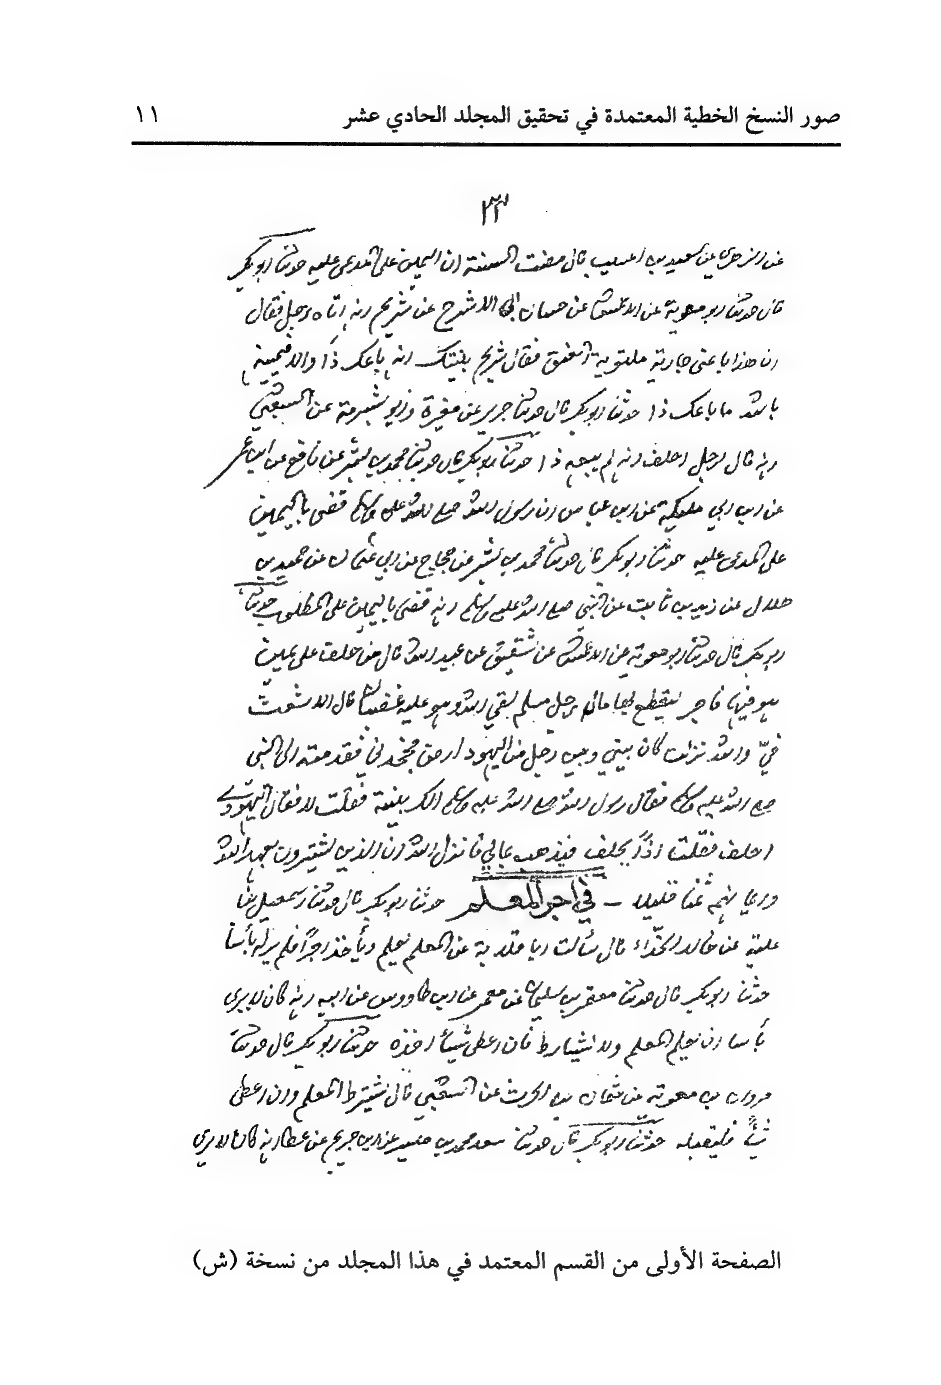 صور النسخ الخطية المعتمدة في تحقيق المجلد الحادي عشر ١١
٣٣
عن الزهري عن سعيد بن المسيب قال مضت السنة ان اليمين على المدعى عليه حدثنا ابو بكر
قال حدثنا ابو معوية عن الاعمش عن حسان ابي الاشرس عن شريح انه اتاه رجل فقال
ان هذا باعني جارية ملتوية العنق فقال شريح بينتك انه باعك ذا والا فيمينه
بالله ما باعك ذا حدثنا ابو بكر قال حدثنا جرير عن مغيرة وابو شبرمة عن الشعبي
انه قال رجل احلف انه لم يبعه ذا حدثنا ابو بكر قال حدثنا محمد بن بشر عن نافع عن ابن عمر
عن ابن ابي مليكة عن ابن عباس ان رسول الله صلى الله عليه وسلم قضى باليمين
على المدعى عليه حدثنا ابو بكر قال حدثنا محمد بن بشر عن حجاج عن ابي عثمان عن حميد بن
هلال عن زيد بن ثابت عن النبي صلى الله عليه وسلم انه قضى باليمين على المطلوب حدثنا
ابو بكر قال حدثنا ابو معوية عن الاعمش عن شقيق عن عبد الله قال من حلف على يمين
هو فيها فاجر ليقطع بها مال رجل مسلم لقي الله وهو عليه غضبان قال الاشعث
فيّ والله نزلت كان بيني وبين رجل من اليهود ارض فجحدني فقدمته الى النبي
صلى الله عليه وسلم فقال رسول الله صلى الله عليه وسلم الك بينة فقلت لا فقال لليهودي
احلف فقلت اذاً يحلف فيذهب بمالي فانزل الله ان الذين يشترون بعهد الله
وايمانهم ثمنا قليلا ـ في اجر المعلم حدثنا ابو بكر قال حدثنا اسمعيل بن
علية عن خالد الحذّاء قال سألت ابا قلابة عن المعلم يعلم ويأخذ اجراً فلم ير به بأسا
حدثنا ابو بكر قال حدثنا معتمر بن سليمان عن معمر عن ابن طاووس عن ابيه انه كان لا يرى
بأسا ان يعلم المعلم ولا يشارط فان اعطي شيئا اخذه حدثنا ابو بكر قال حدثنا
مروان بن معوية عن عثمان بن الحرث عن الشعبي قال لا يشترط المعلم وان اعطي
شيئاً فليقبله حدثنا ابو بكر قال حدثنا محمد بن ميسر عن ابن جريج عن عطا انه كان لا يرى
الصفحة الأولى من القسم المعتمد في هذا المجلد من نسخة (ش)